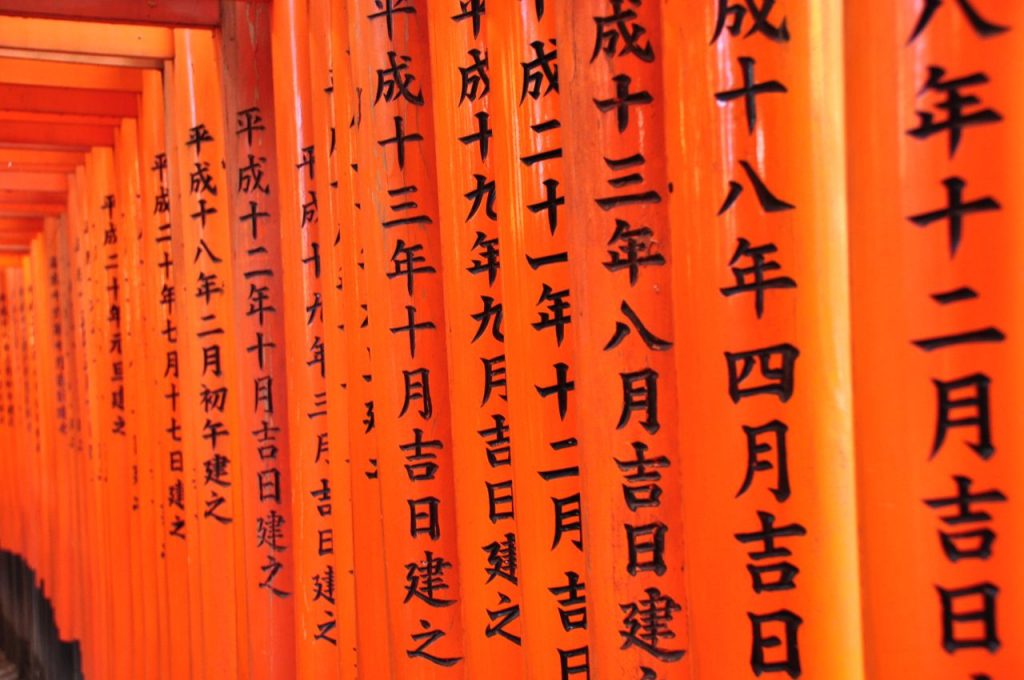 八年十二月吉日
成十八年四月吉日
成十三年八月吉日建
成二十一年十二月吉日
平成十九年九月吉日建之
平成十三年十月吉日建之
平成十九年三月吉日建之
平成十二年十月吉日建之
平成十八年二月初午建之
平成二十年七月十七日建之
平成二十年元旦建之